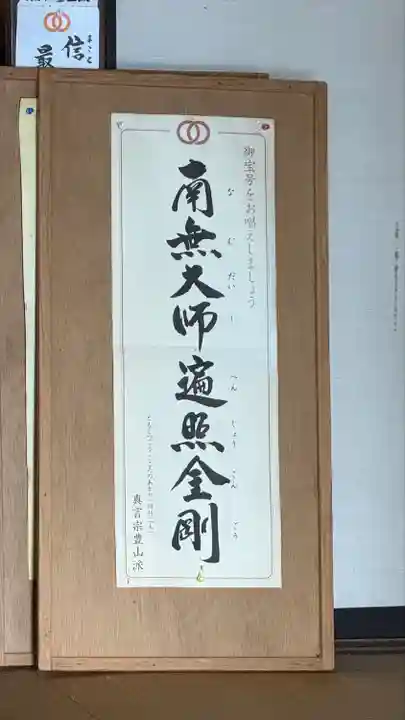 御宝号をお唱えしましょう
南無大師遍照金剛
なむだいしへんじょうこんごう
真言宗豊山派
信
まこと
最